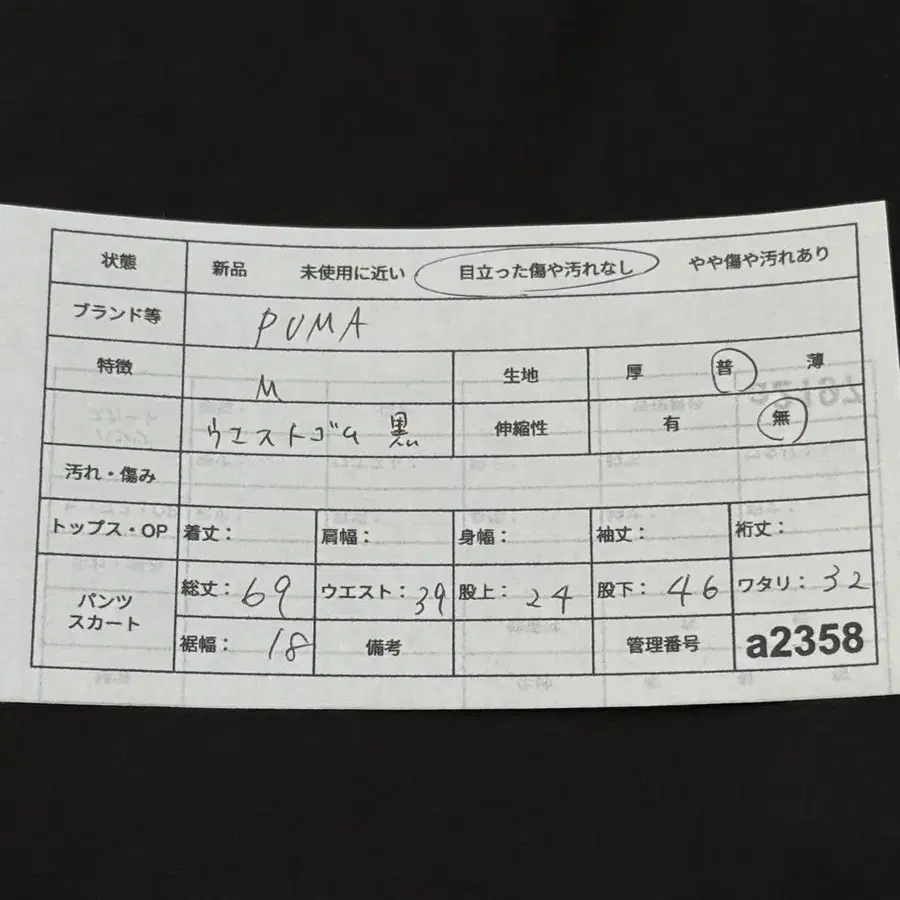 状態 新品 未使用に近い 目立った傷や汚れなし やや傷や汚れあり
ブランド等 PUMA
特徴 M 生地 厚 普 薄
ウエストゴム 黒 伸縮性 有 無
汚れ・傷み
トップス・OP 着丈: 肩幅: 身幅: 袖丈: 裄丈:
パンツ 総丈:69 ウエスト:39 股上:24 股下:46 ワタリ:32
スカート 裾幅:18 備考 管理番号 a2358